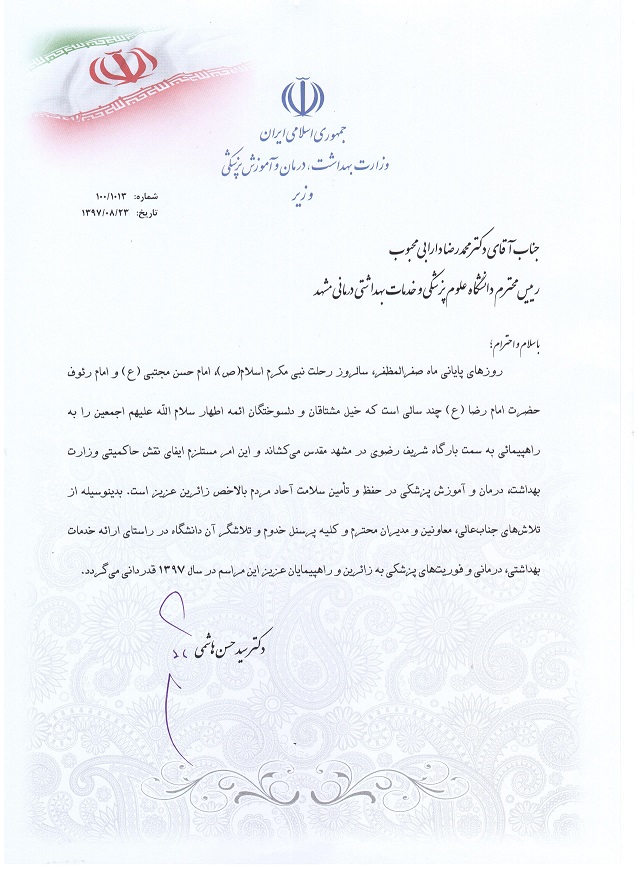 جمهوری اسلامی ایران
وزارت بهداشت، درمان و آموزش پزشکی
وزیر
شماره: ۱۰۰/۱۰۱۳
تاریخ: ۱۳۹۷/۰۸/۲۳
جناب آقای دکتر محمدرضا دارابی محبوب
رییس محترم دانشگاه علوم پزشکی و خدمات بهداشتی درمانی مشهد
با سلام و احترام؛
روزهای پایانی ماه صفرالمظفر، سالروز رحلت نبی مکرم اسلام(ص)، امام حسن مجتبی (ع) و امام رئوف
حضرت امام رضا (ع) چند سالی است که خیل مشتاقان و دلسوختگان ائمه اطهار سلام الله علیهم اجمعین را به
راهپیمائی به سمت بارگاه شریف رضوی در مشهد مقدس می‌کشاند و این امر مستلزم ایفای نقش حاکمیتی وزارت
بهداشت، درمان و آموزش پزشکی در حفظ و تأمین سلامت آحاد مردم بالاخص زائرین عزیز است. بدینوسیله از
تلاش‌های جناب‌عالی، معاونین و مدیران محترم و کلیه پرسنل خدوم و تلاشگر آن دانشگاه در راستای ارائه خدمات
بهداشتی، درمانی و فوریت‌های پزشکی به زائرین و راهپیمایان عزیز این مراسم در سال ۱۳۹۷ قدردانی می‌گردد.
دکتر سید حسن هاشمی